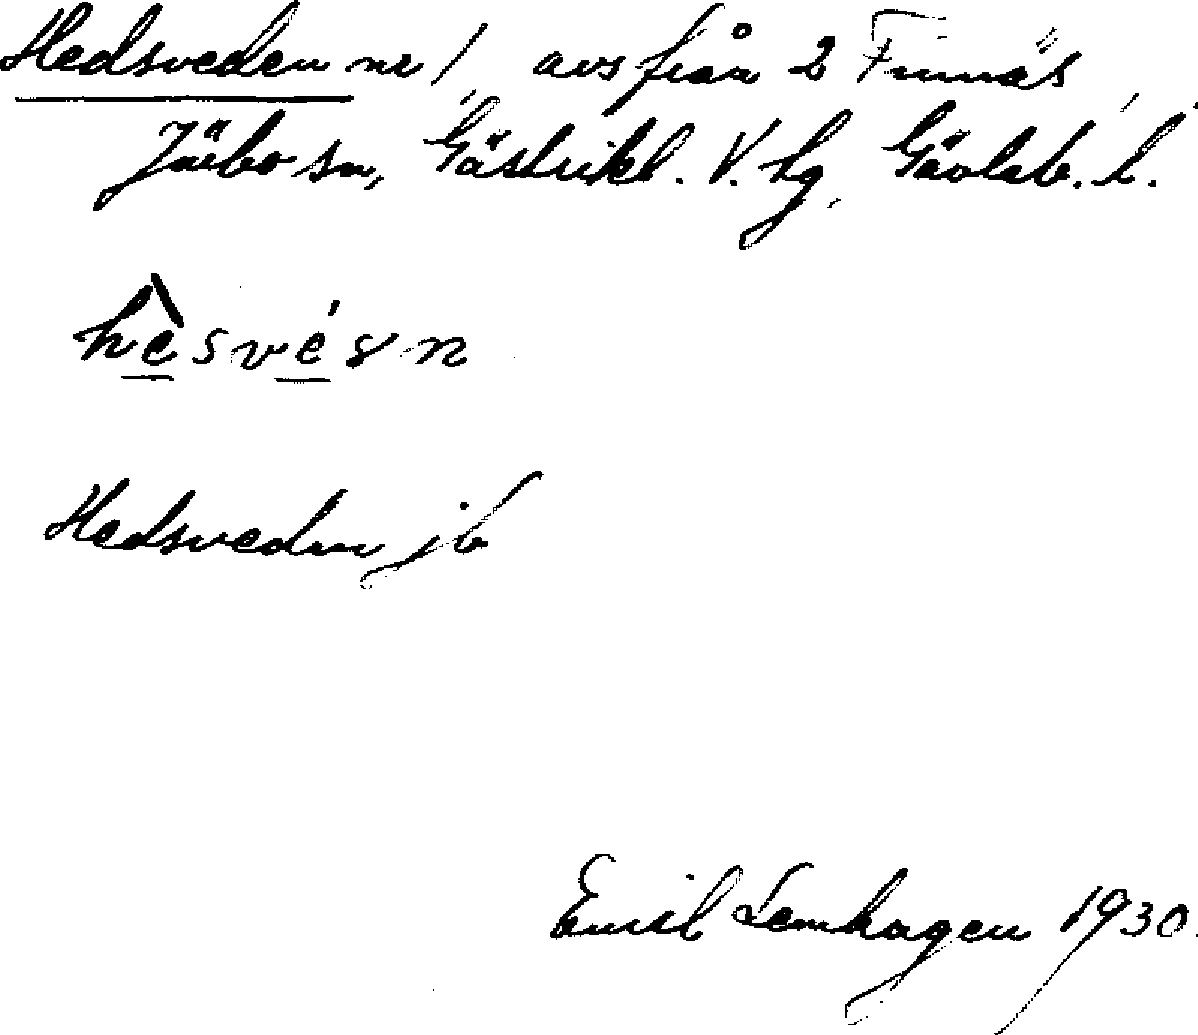 Hedsveden nr 1, avs från 2 Finnäs,
Järbo sn, Gästrikl. V. tg, Gävleb. l.
hèsvésn
Hedsveden jb
Emil Lenhagen 1930.